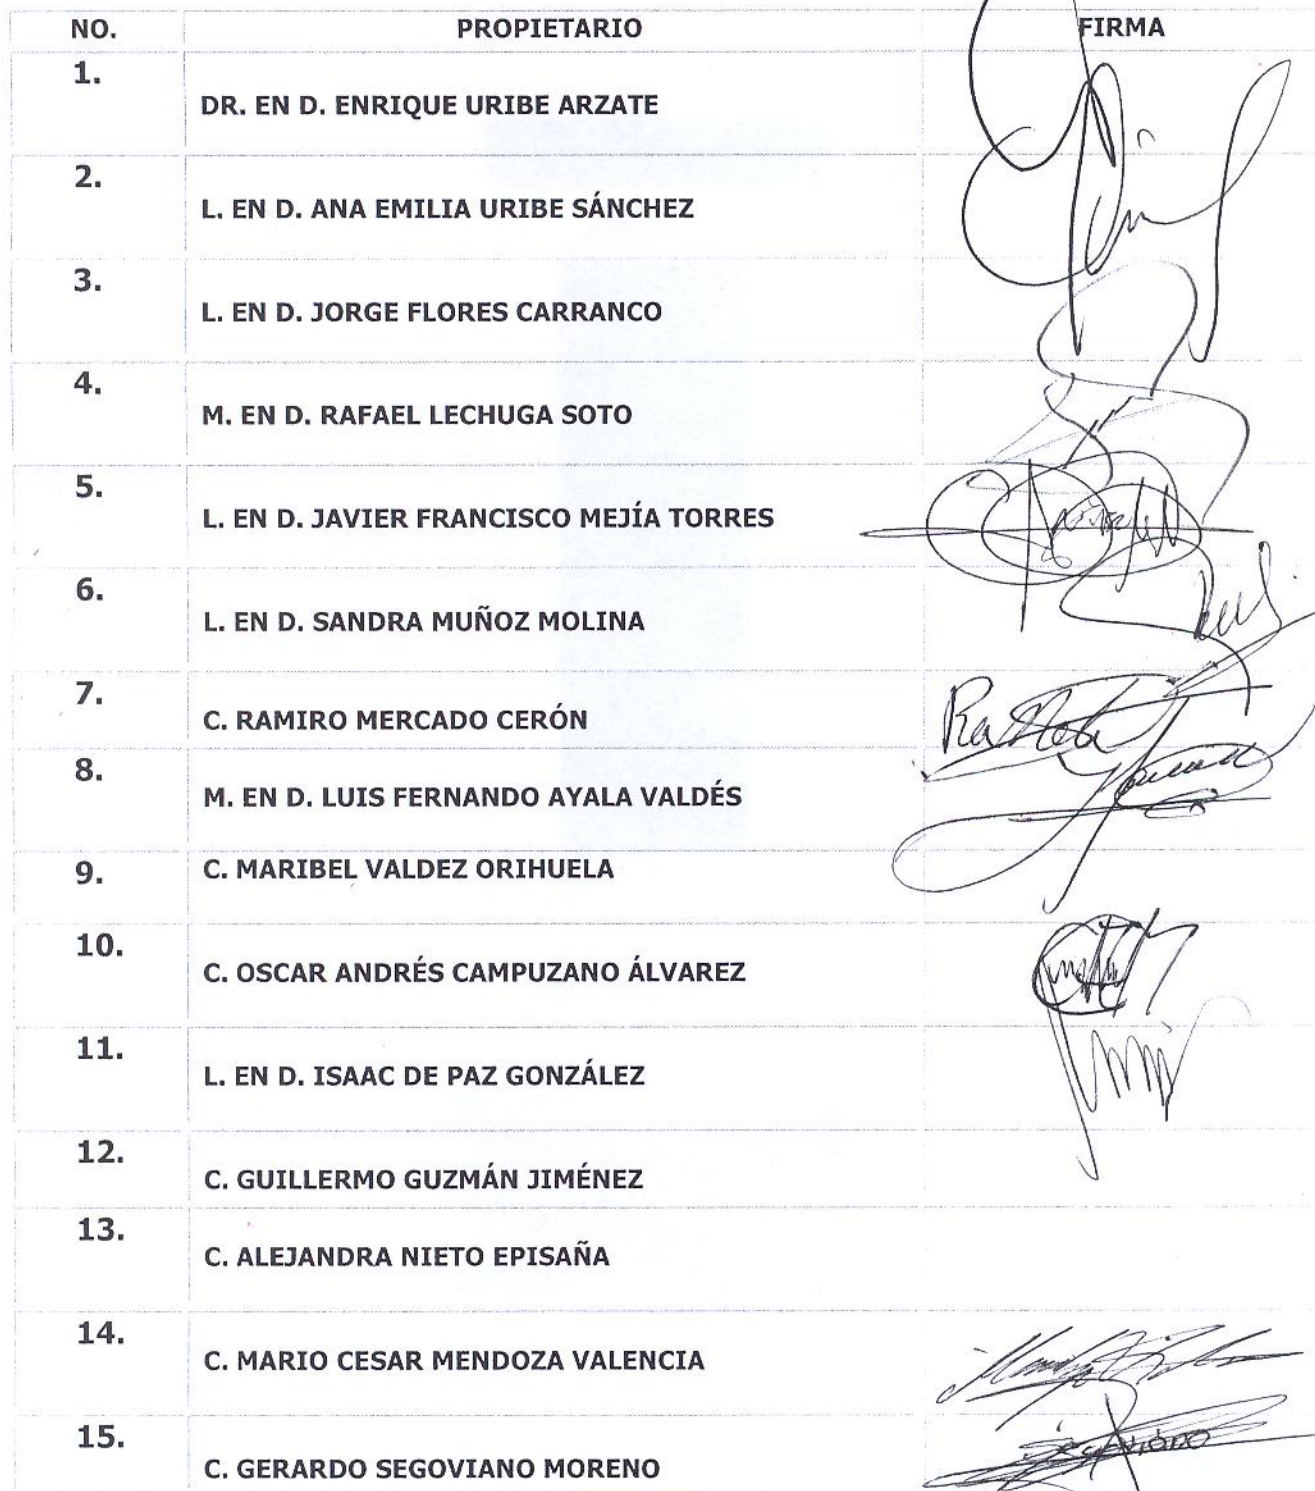 NO. PROPIETARIO FIRMA
1. DR. EN D. ENRIQUE URIBE ARZATE
2. L. EN D. ANA EMILIA URIBE SÁNCHEZ
3. L. EN D. JORGE FLORES CARRANCO
4. M. EN D. RAFAEL LECHUGA SOTO
5. L. EN D. JAVIER FRANCISCO MEJÍA TORRES
6. L. EN D. SANDRA MUÑOZ MOLINA
7. C. RAMIRO MERCADO CERÓN
8. M. EN D. LUIS FERNANDO AYALA VALDÉS
9. C. MARIBEL VALDEZ ORIHUELA
10. C. OSCAR ANDRÉS CAMPUZANO ÁLVAREZ
11. L. EN D. ISAAC DE PAZ GONZÁLEZ
12. C. GUILLERMO GUZMÁN JIMÉNEZ
13. C. ALEJANDRA NIETO EPISAÑA
14. C. MARIO CESAR MENDOZA VALENCIA
15. C. GERARDO SEGOVIANO MORENO